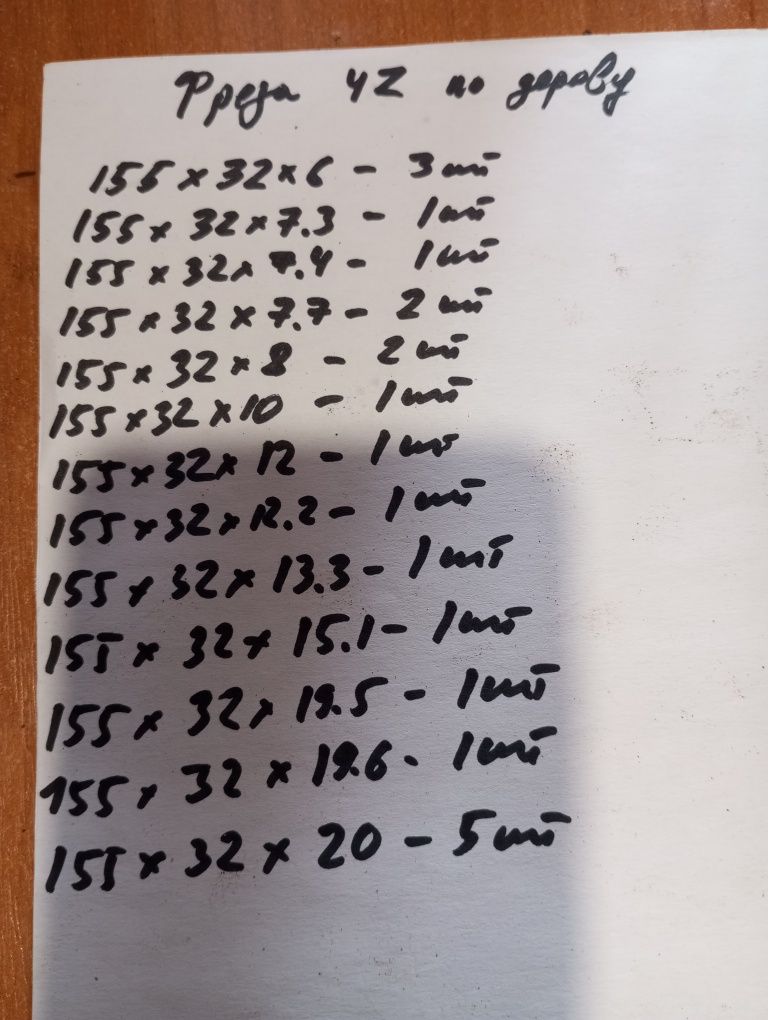 Фреза 4Z по дереву
155 x 32 x 6 - 3 шт
155 x 32 x 7.3 - 1 шт
155 x 32 x 7.4 - 1 шт
155 x 32 x 7.7 - 2 шт
155 x 32 x 8 - 2 шт
155 x 32 x 10 - 1 шт
155 x 32 x 12 - 1 шт
155 x 32 x 12.2 - 1 шт
155 x 32 x 13.3 - 1 шт
155 x 32 x 15.1 - 1 шт
155 x 32 x 19.5 - 1 шт
155 x 32 x 19.6 - 1 шт
155 x 32 x 20 - 5 шт